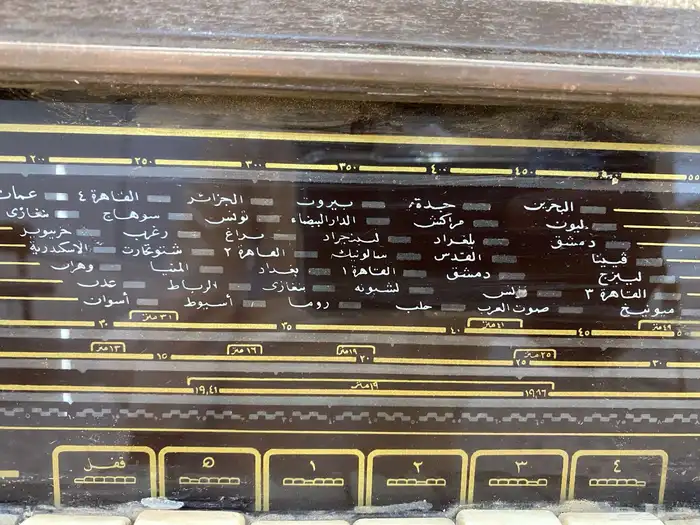 ٢٠٠ ٢٥٠ ٣٠٠ ٣٥٠ ٤٠٠ ٤٥٠ ٥٥
البحرين جدة بيروت الجزائر القاهرة ٤ عمان
ليون مراكش الدار البيضاء تونس سوهاج بنغازى
دمشق بلغراد لينينجراد براغ زغرب
ڤيينا القدس سالونيك القاهرة ٢ شتوتجارت الاسكندرية
ليبزج دمشق القاهرة ١ بغداد المنيا وهران
القاهرة ٣ تونس لشبونه بنغازى الرباط عدن
ميونيخ صوت العرب حلب روما أسيوط أسوان
٣١ متر ٤١ متر ٤٩ متر
٣٠ ٣٥ ٤٠ ٤٥ ٥
١٣ متر ١٦ متر ١٩ متر ٢٥ متر
١٥ ٢٠ ٢٥ ٣٠
١٩ متر
١٩,٤١ ١٩,٩٦
قفل ٥ ١ ٢ ٣ ٤